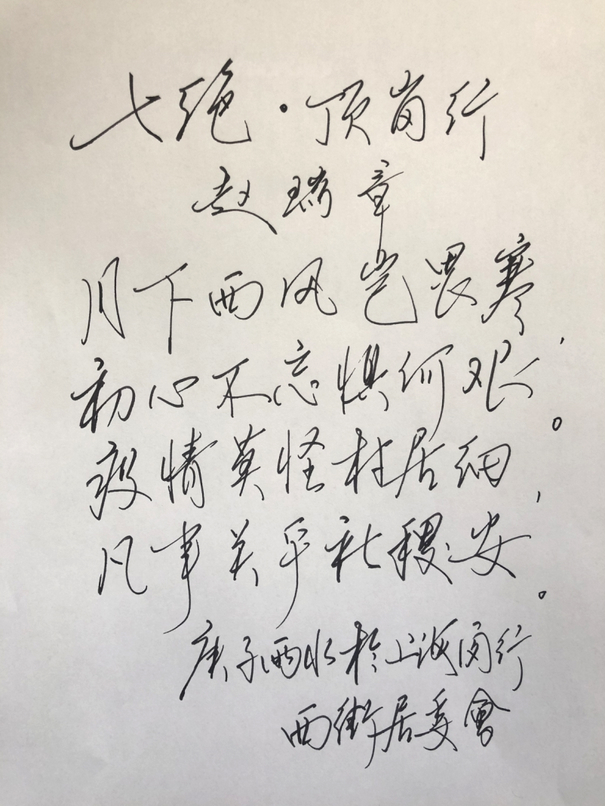 七绝·顶岗行
赵瑞章
月下西风岂畏寒，
初心不忘惧何艰。
疫情莫怪社居细，
凡事关乎社稷安。
庚子雨水於上海闵行
西街居委會